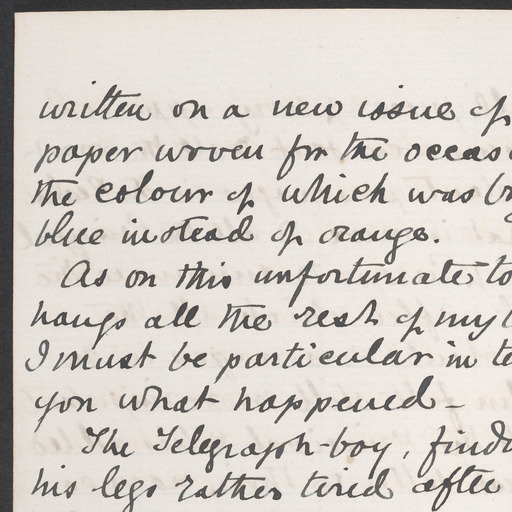 written on a new issue of
paper woven for the occas
the colour of which was br
blue instead of orange.
As on this unfortunate to
hangs all the rest of my
I must be particular in te
you what happened -
The Telegraph-boy, findi
his legs rather tired after